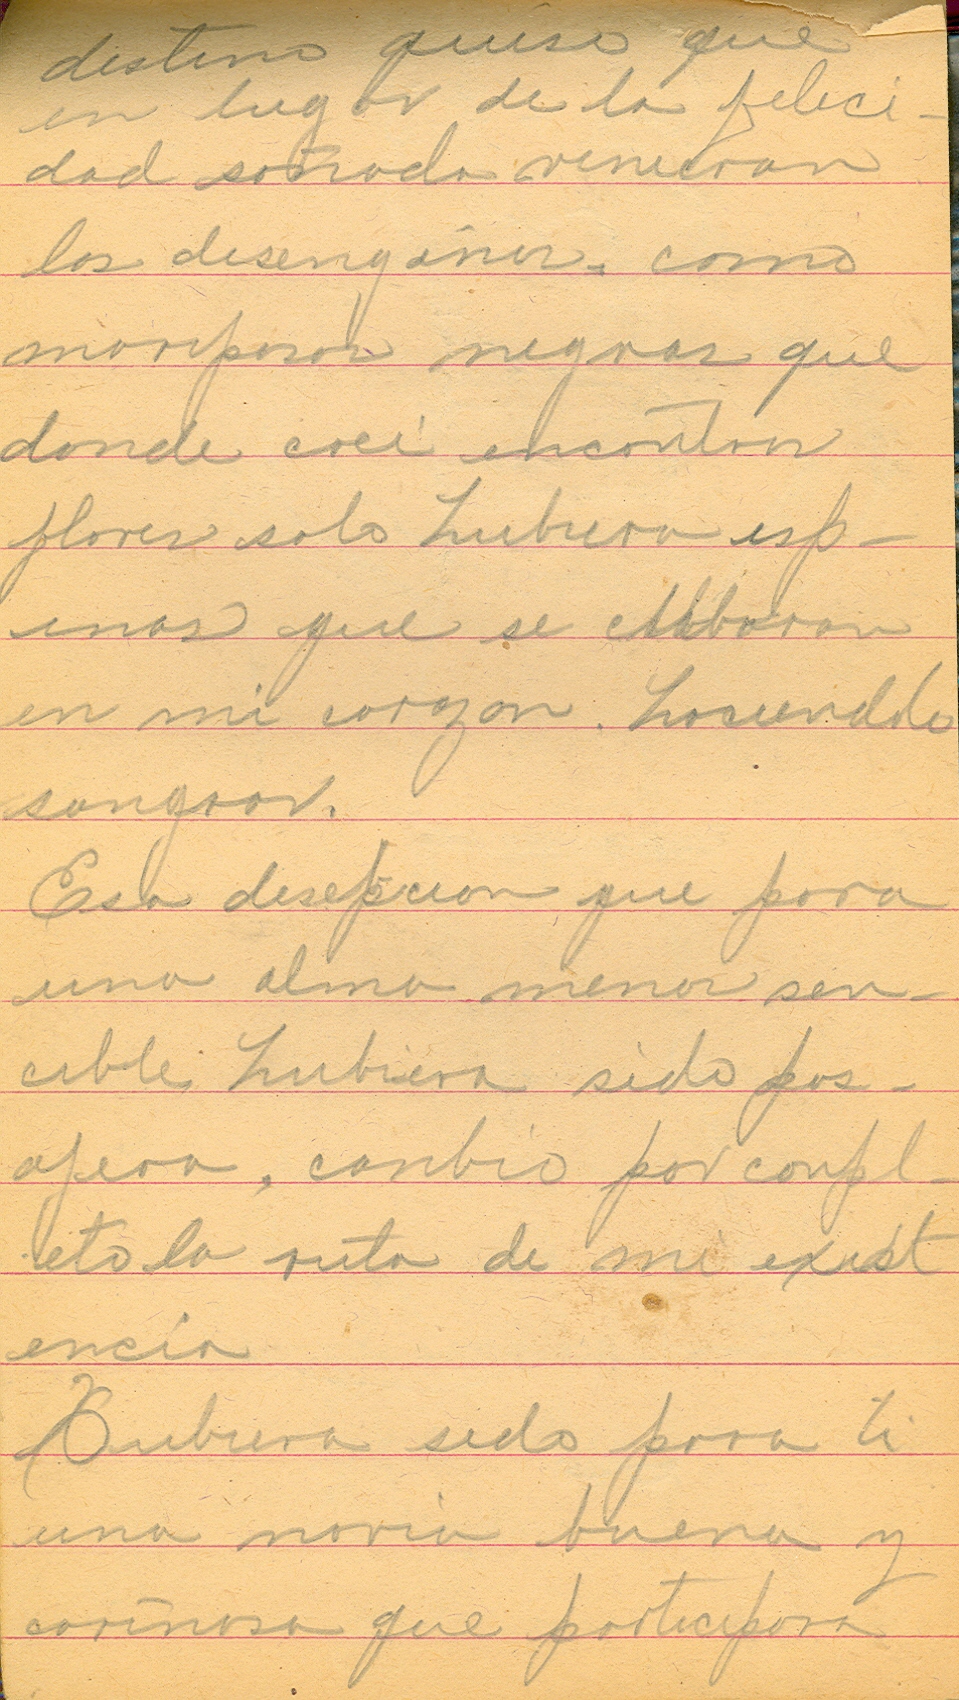 destino quiso que
en lugar de la felici-
dad soñada vinieran
los desengaños. como
mariposas negras que
donde creí encontrar
flores solo hubiera esp-
inas que se clavaran
en mi corazon. haciendolo
sangrar.
Esa desepcion que para
una alma menos sen-
cible hubiera sido pas-
ajera, canbio por conpl-
eto la ruta de mi exist
encia
Hubiera sido para ti
una novia buena y
cariñosa que participara